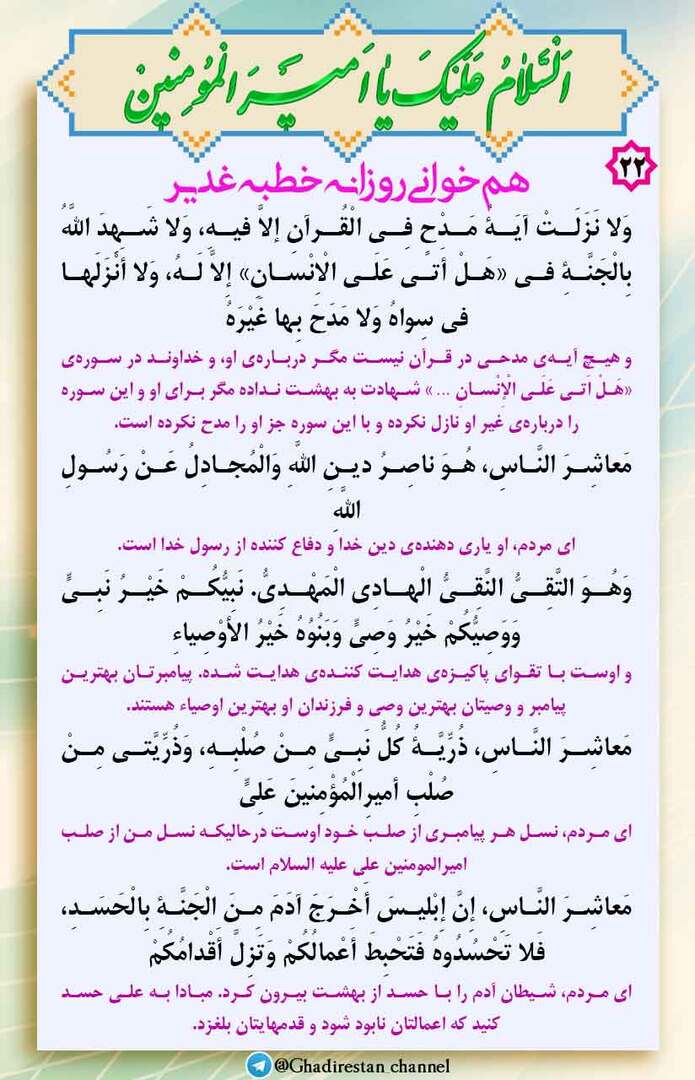 اَلسَّلامُ عَلَیْکَ یا اَمیرَالْمُومِنین
۲۲
هم خوانی روزانه خطبه غدیر
وَلا نَزَلَتْ آیَةُ مَدْحٍ فِی الْقُرآنِ إلاّ فیهِ، وَلا شَهِدَ اللَّهُ
بِالْجَنَّةِ فی «هَلْ أتی عَلَی الْاِنْسانِ» إلاّ لَهُ، وَلا أنْزَلَها
فی سِواهُ وَلا مَدَحَ بِها غَیْرَهُ
و هیچ آیه‌ی مدحی در قرآن نیست مگر درباره‌ی او، و خداوند در سوره‌ی
«هَلْ اَتی عَلَی الْاِنْسانِ ...» شهادت به بهشت نداده مگر برای او و این سوره
را درباره‌ی غیر او نازل نکرده و با این سوره جز او را مدح نکرده است.
مَعاشِرَ النّاسِ، هُوَ ناصِرُ دینِ اللَّهِ وَالْمُجادِلُ عَنْ رَسُولِ
اللَّهِ
ای مردم، او یاری دهنده‌ی دین خدا و دفاع کننده از رسول خدا است.
وَهُوَ التَّقِیُّ النَّقِیُّ الْهادِی الْمَهْدِیُّ. نَبِیُّکُمْ خَیْرُ نَبِیٍّ
وَوَصِیُّکُمْ خَیْرُ وَصِیٍّ وَبَنُوُهُ خَیْرُ الأوْصِیاءِ
و اوست با تقوای پاکیزه‌ی هدایت کننده‌ی هدایت شده. پیامبرتان بهترین
پیامبر و وصیتان بهترین وصی و فرزندان او بهترین اوصیاء هستند.
مَعاشِرَ النّاسِ، ذُرِّیَّةُ کُلُّ نَبِیٍّ مِنْ صُلْبِهِ، وَذُرِّیَّتی مِنْ
صُلْبِ أمیرِالْمُؤْمِنینَ عَلِیٍّ
ای مردم، نسل هر پیامبری از صلب خود اوست درحالیکه نسل من از صلب
امیرالمومنین علی علیه السلام است.
مَعاشِرَ النّاسِ، إنَّ إبْلیسَ أخْرَجَ آدَمَ مِنَ الْجَنَّةِ بِالْحَسَدِ،
فَلا تَحْسُدُوهُ فَتَحْبِطَ أعْمالُکُمْ وَتَزِلَّ أقْدامُکُمْ
ای مردم، شیطان آدم را با حسد از بهشت بیرون کرد. مبادا به علی حسد
کنید که اعمالتان نابود شود و قدمهایتان بلغزد.
@Ghadirestan_channel